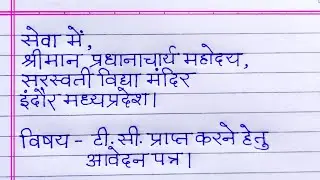 सेवा में,
श्रीमान प्रधानाचार्य महोदय,
सरस्वती विद्या मंदिर
इंदौर मध्यप्रदेश।
विषय - टी. सी. प्राप्त करने हेतु
आवेदन पत्र।